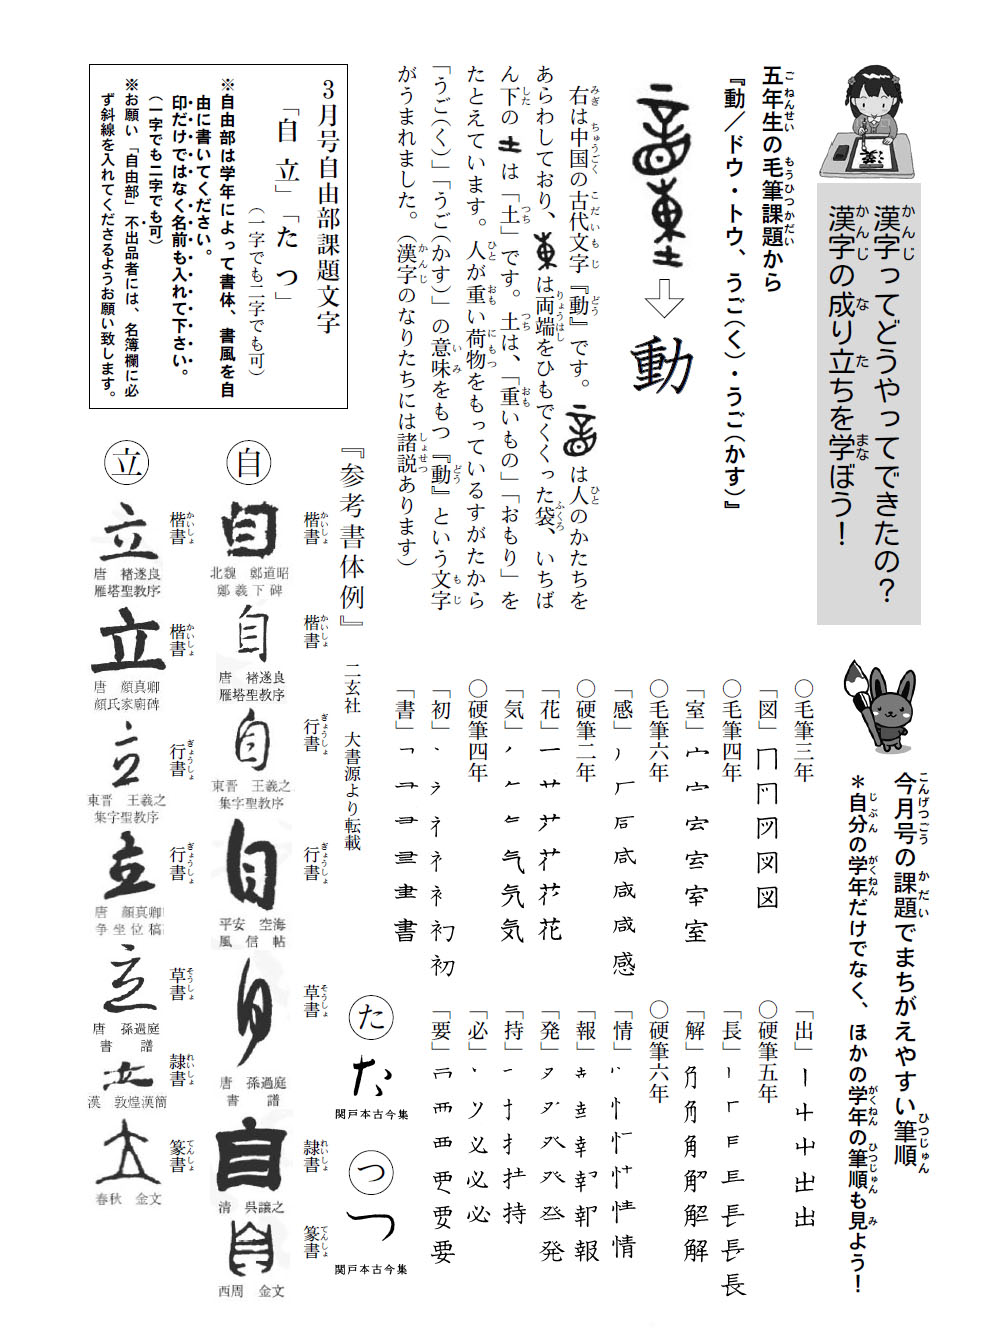 漢字ってどうやってできたの？
漢字の成り立ちを学ぼう！
五年生の毛筆課題から
『動／ドウ・トウ、うご（く）・うご（かす）』
動
右は中国の古代文字『動』です。は人のかたちを
あらわしており、は両端をひもでくくった袋、いちば
ん下のは「土」です。土は、「重いもの」「おもり」を
たとえています。人が重い荷物をもっているすがたから
「うご（く）」「うご（かす）」の意味をもつ『動』という文字
がうまれました。（漢字のなりたちには諸説あります）
３月号自由部課題文字
「自 立」「た つ」
（一字でも二字でも可）
※自由部は学年によって書体、書風を自
由に書いてください。
印だけではなく名前も入れて下さい。
（一字でも二字でも可）
※お願い「自由部」不出品者には、名簿欄に必
ず斜線を入れてくださるようお願い致します。
今月号の課題でまちがえやすい筆順
＊自分の学年だけでなく、ほかの学年の筆順も見よう！
〇毛筆三年
「図」
〇毛筆四年
「室」
〇毛筆六年
「感」
〇硬筆二年
「花」
「気」
〇硬筆四年
「初」
「書」
「出」
〇硬筆五年
「長」
「解」
〇硬筆六年
「情」
「報」
「発」
「持」
「必」
「要」
『参考書体例』 二玄社 大書源より転載
自
楷書
自
北魏 鄭道昭
鄭羲下碑
楷書
自
唐 褚遂良
雁塔聖教序
行書
自
東晋 王羲之
集字聖教序
行書
自
平安 空海
風信帖
草書
自
唐 孫過庭
書譜
隷書
自
清 呉譲之
篆書
自
西周 金文
立
楷書
立
唐 褚遂良
雁塔聖教序
楷書
立
唐 顔真卿
顔氏家廟碑
行書
立
東晋 王羲之
集字聖教序
行書
立
唐 顔真卿
争坐位稿
草書
立
唐 孫過庭
書譜
隷書
立
漢 敦煌漢簡
篆書
立
春秋 金文
た
た
関戸本古今集
つ
つ
関戸本古今集